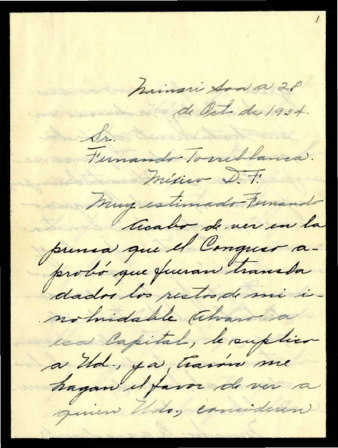 1
Nainari Son a 28
de Oct. de 1934.
Sr.
Fernando Torreblanca.
México D. F.
Muy estimado Fernando
Acabo de ver en la
prensa que el Congreso a-
probó que fueran transla
dados los restos, de mi i-
nolvidable Alvaro a
esa Capital, le suplico
a Ud., ya, me
hagan el favor de ver a
quien Uds, consideren